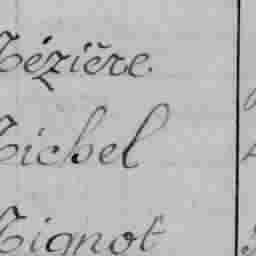 Mézière.
Michel
Mignot